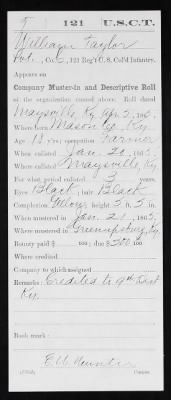 T 121 U.S.C.T.
William Taylor
Pvt., Co. , 121 Reg't U. S. Col'd Infantry.
Appears on
Company Muster-in and Descriptive Roll
of the organization named above. Roll dated
Maysville Ky , 1865.
Where born Mason Co. Ky
Age 18 y'rs; occupation Farmer
When enlisted Jan. 20 , 1865.
Where enlisted Maysville, Ky.
For what period enlisted 3 years.
Eyes Black ; hair Black
Complexion ; height 5 ft. 5 in.
When mustered in Jan. 21 , 1865.
Where mustered in Greenupsburg, Ky.
Bounty paid $ 100; due $ 300 100
Where credited
Company to which assigned
Remarks: Credited to 9th Dist
Ky.
Book mark: